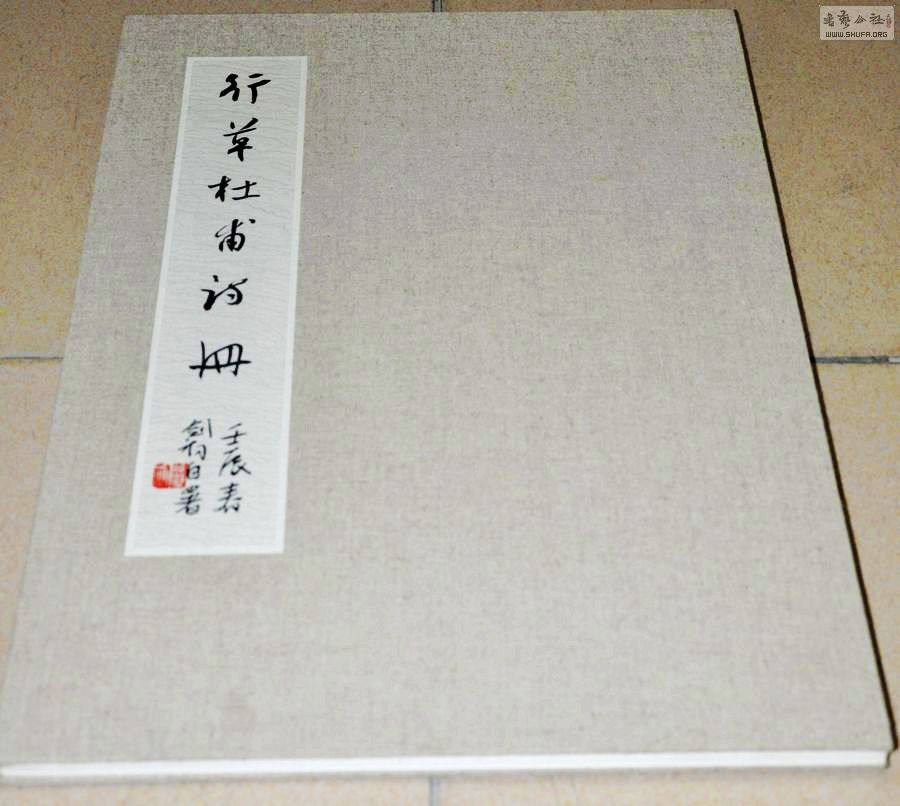 行草杜甫诗册
壬辰春
剑构自署
书艺公社
WWW.SHUFA.ORG